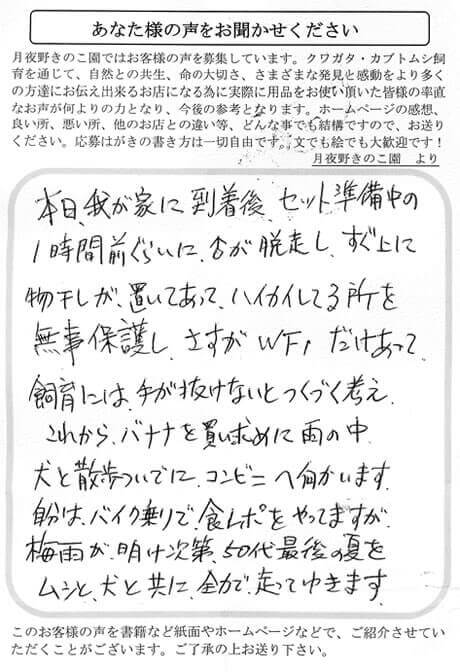 あなた様の声をお聞かせください
月夜野きのこ園ではお客様の声を募集しています。クワガタ・カブトムシ飼
育を通じて、自然との共生、命の大切さ、さまざまな発見と感動をより多く
の方達にお伝え出来るお店になる為に実際に用品をお使い頂いた皆様の率直
なお声が何よりの力となり、今後の参考となります。ホームページの感想、
良い所、悪い所、他のお店との違い等、どんな事でも結構ですので、お送り
ください。応募はがきの書き方は一切自由です。文でも絵でも大歓迎です!
月夜野きのこ園 より
本日、我が家に到着後、セット準備中の
1時間前ぐらいに、♀が脱走し、すぐ上に
物干しが、置いてあって、ハイカイしてる所を
無事保護し、さすがWF1だけあって、
飼育には、手が抜けないとつくづく考え、
これから、バナナを買い求めに雨の中、
犬と散歩ついでに、コンビニへ向かいます。
自分は、バイク乗りで、食レポをやってますが、
梅雨が、明け次第、50代最後の夏を
ムシと、犬と共に、全力で、走ってゆきます。
このお客様の声を書籍など紙面やホームページなどで、ご紹介させてい
ただくことがございます。ご了承の上お送り下さい。